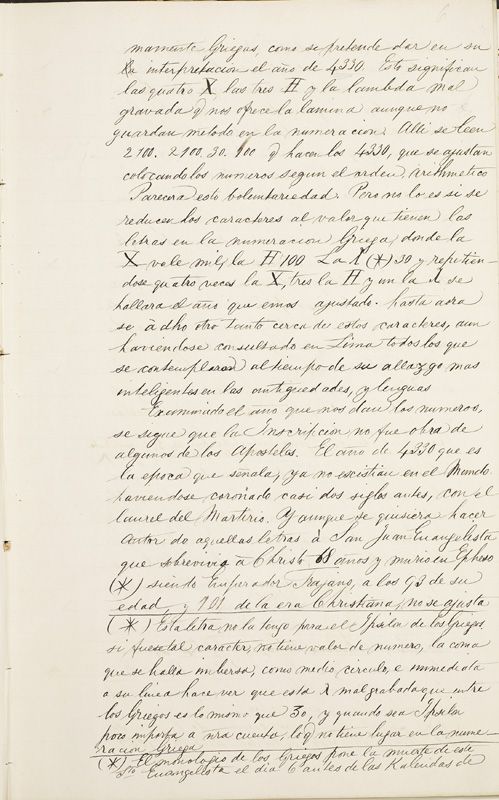 mamente Griegas, como se pretende dar en su
interpretacion el año de 4330. Esto significan
las quatro X las tres H y la lambda mal
gravada q nos ofrece la lamina aunque no
guardan metodo en la numeracion. Alli se leen
2100. 2100. 30. 100 q hacen los 4330, que se ajustan
colocando los numeros segun el orden Arithmetico
Parecera esto boluntariedad. Pero no lo es si se
reducen dos caracteres al valor que tienen las
letras en la numeracion Griega, donde la
X vale mil, la H 100 La λ (*) 30 y repitien-
dose quatro veces la X, tres la H y un la λ se
hallara el año que emos ajustado. hasta aora
se à dho otro tanto cerca de estos caracteres, aun
haviendose consultado en Lima todos los que
se contemplaron al tiempo de su allazgo mas
inteligentes en las antiguedades, y lenguas
Examinado el año que nos dan los numeros,
se sigue que la Inscripcion no fue obra de
algunos de los Apostoles. El año de 4330 que es
la epoca que señala, ya no existian en el Mundo
haviendose coronado casi dos siglos antes, con el
laurel del Martirio. Y aunque se quisiera hacer
autor de aquellas letras à San Juan Evangelista
que sobrevivio à Christo 68 años y murio en Epheso
(*) siendo Emperador Trajano, a los 93 de su
edad, y 101 de la era Christiana, no se ajusta
(*) Esta letra no la tengo para el Ipsilon de los Griegos,
si fuese tal caracter, no tiene valor de numero, la coma
que se halla imbersa, como medio circulo, e immediata
a su linea hace ver que esta λ mal grabada, que entre
los Griegos es lo mismo que 30, y quando sea Ipsilon
poco importa a nra cuenta, lo q no tiene lugar en la nume-
racion Griega
(*) El monologio de los Griegos pone la muerte de este
Sto Evangelista el dia 6 antes de las Kalendas de